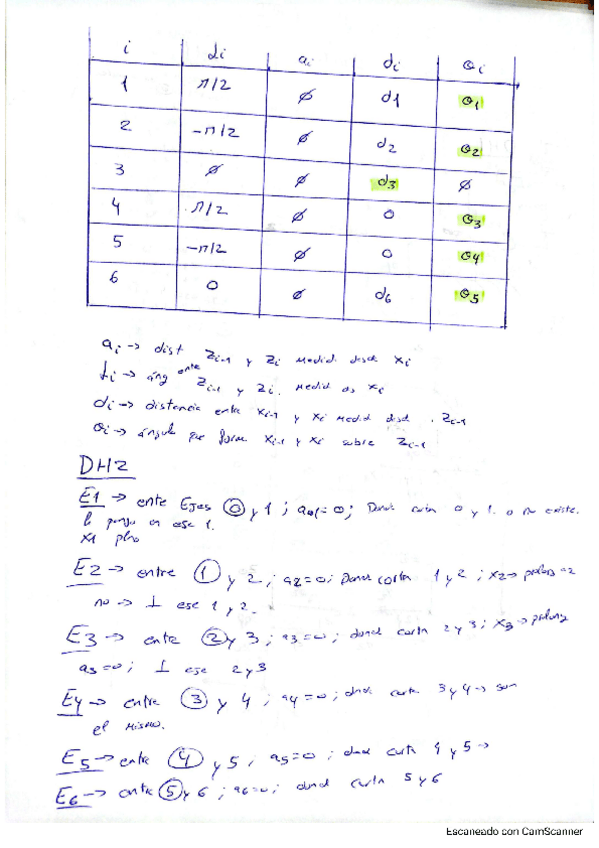 i αi ai di θi
1 π/2 ∅ d1 θ1
2 -π/2 ∅ d2 θ2
3 ∅ ∅ d3 ∅
4 π/2 ∅ 0 θ3
5 -π/2 ∅ 0 θ4
6 0 ∅ d6 θ5
ai → dist zi-1 y zi medid. desde xi
αi → áng ente zi-1 y zi. medid xi
di → distancia ente xi-1 y xi medid desd. zi-1
θi → ángulo que forma xi-1 y xi sobre zi-1
DH2
E1 → ente Ejes 0 y 1 ; =0; Donde 0 y 1. o no existe.
lo pongo en ese 1.
x1
E2 → entre 1 y 2 ; a2=0; Donde corta 1 y 2 ; x2 → a2
no → ⊥ ese 1 y 2.
E3 → ente 2 y 3 ; a3=0 ; dond corta 2 y 3 ; x3 → prolong
a3=0 ; ⊥ ese 2 y 3
E4 → entre 3 y 4 ; a4=0 ; dnd corta 3 y 4 → son
el mismo.
E5 → ente 4 y 5 ; a5=0 ; dond corta 4 y 5 →
E6 → ente 5 y 6 ; a6=0 ; dond corta 5 y 6
Escaneado con CamScanner